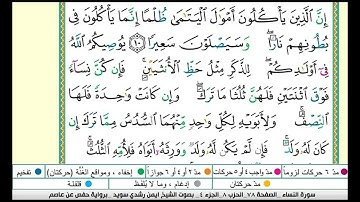 إِنَّ الَّذِينَ يَأْكُلُونَ أَمْوَالَ الْيَتَامَىٰ ظُلْمًا إِنَّمَا يَأْكُلُونَ فِي
بُطُونِهِمْ نَارًا ۖ وَسَيَصْلَوْنَ سَعِيرًا ١٠ يُوصِيكُمُ اللَّهُ
فِي أَوْلَادِكُمْ ۖ لِلذَّكَرِ مِثْلُ حَظِّ الْأُنثَيَيْنِ ۚ فَإِن كُنَّ نِسَاءً
فَوْقَ اثْنَتَيْنِ فَلَهُنَّ ثُلُثَا مَا تَرَكَ ۖ وَإِن كَانَتْ وَاحِدَةً فَلَهَا
النِّصْفُ ۚ وَلِأَبَوَيْهِ لِكُلِّ وَاحِدٍ مِّنْهُمَا السُّدُسُ مِمَّا تَرَكَ إِن
كَانَ لَهُ وَلَدٌ ۚ فَإِن لَّمْ يَكُن لَّهُ وَلَدٌ وَوَرِثَهُ أَبَوَاهُ فَلِأُمِّهِ الثُّلُثُ ۚ
مدّ ٦ حركات لزوماً مدّ واجب ٤ أو ٥ حركات مدّ ٢ أو ٤ أو ٦ جوازاً إخفاء، ومواقع الغُنَّة (حركتان) تفخيم
مدّ حركتان إدغام، وما لا يُلفَظ قلقلة
سورة النساء، الصفحة ٧٨، الحزب ٨، الجزء ٤، بصوت الشيخ أيمن رشدي سويد، برواية حفص عن عاصم